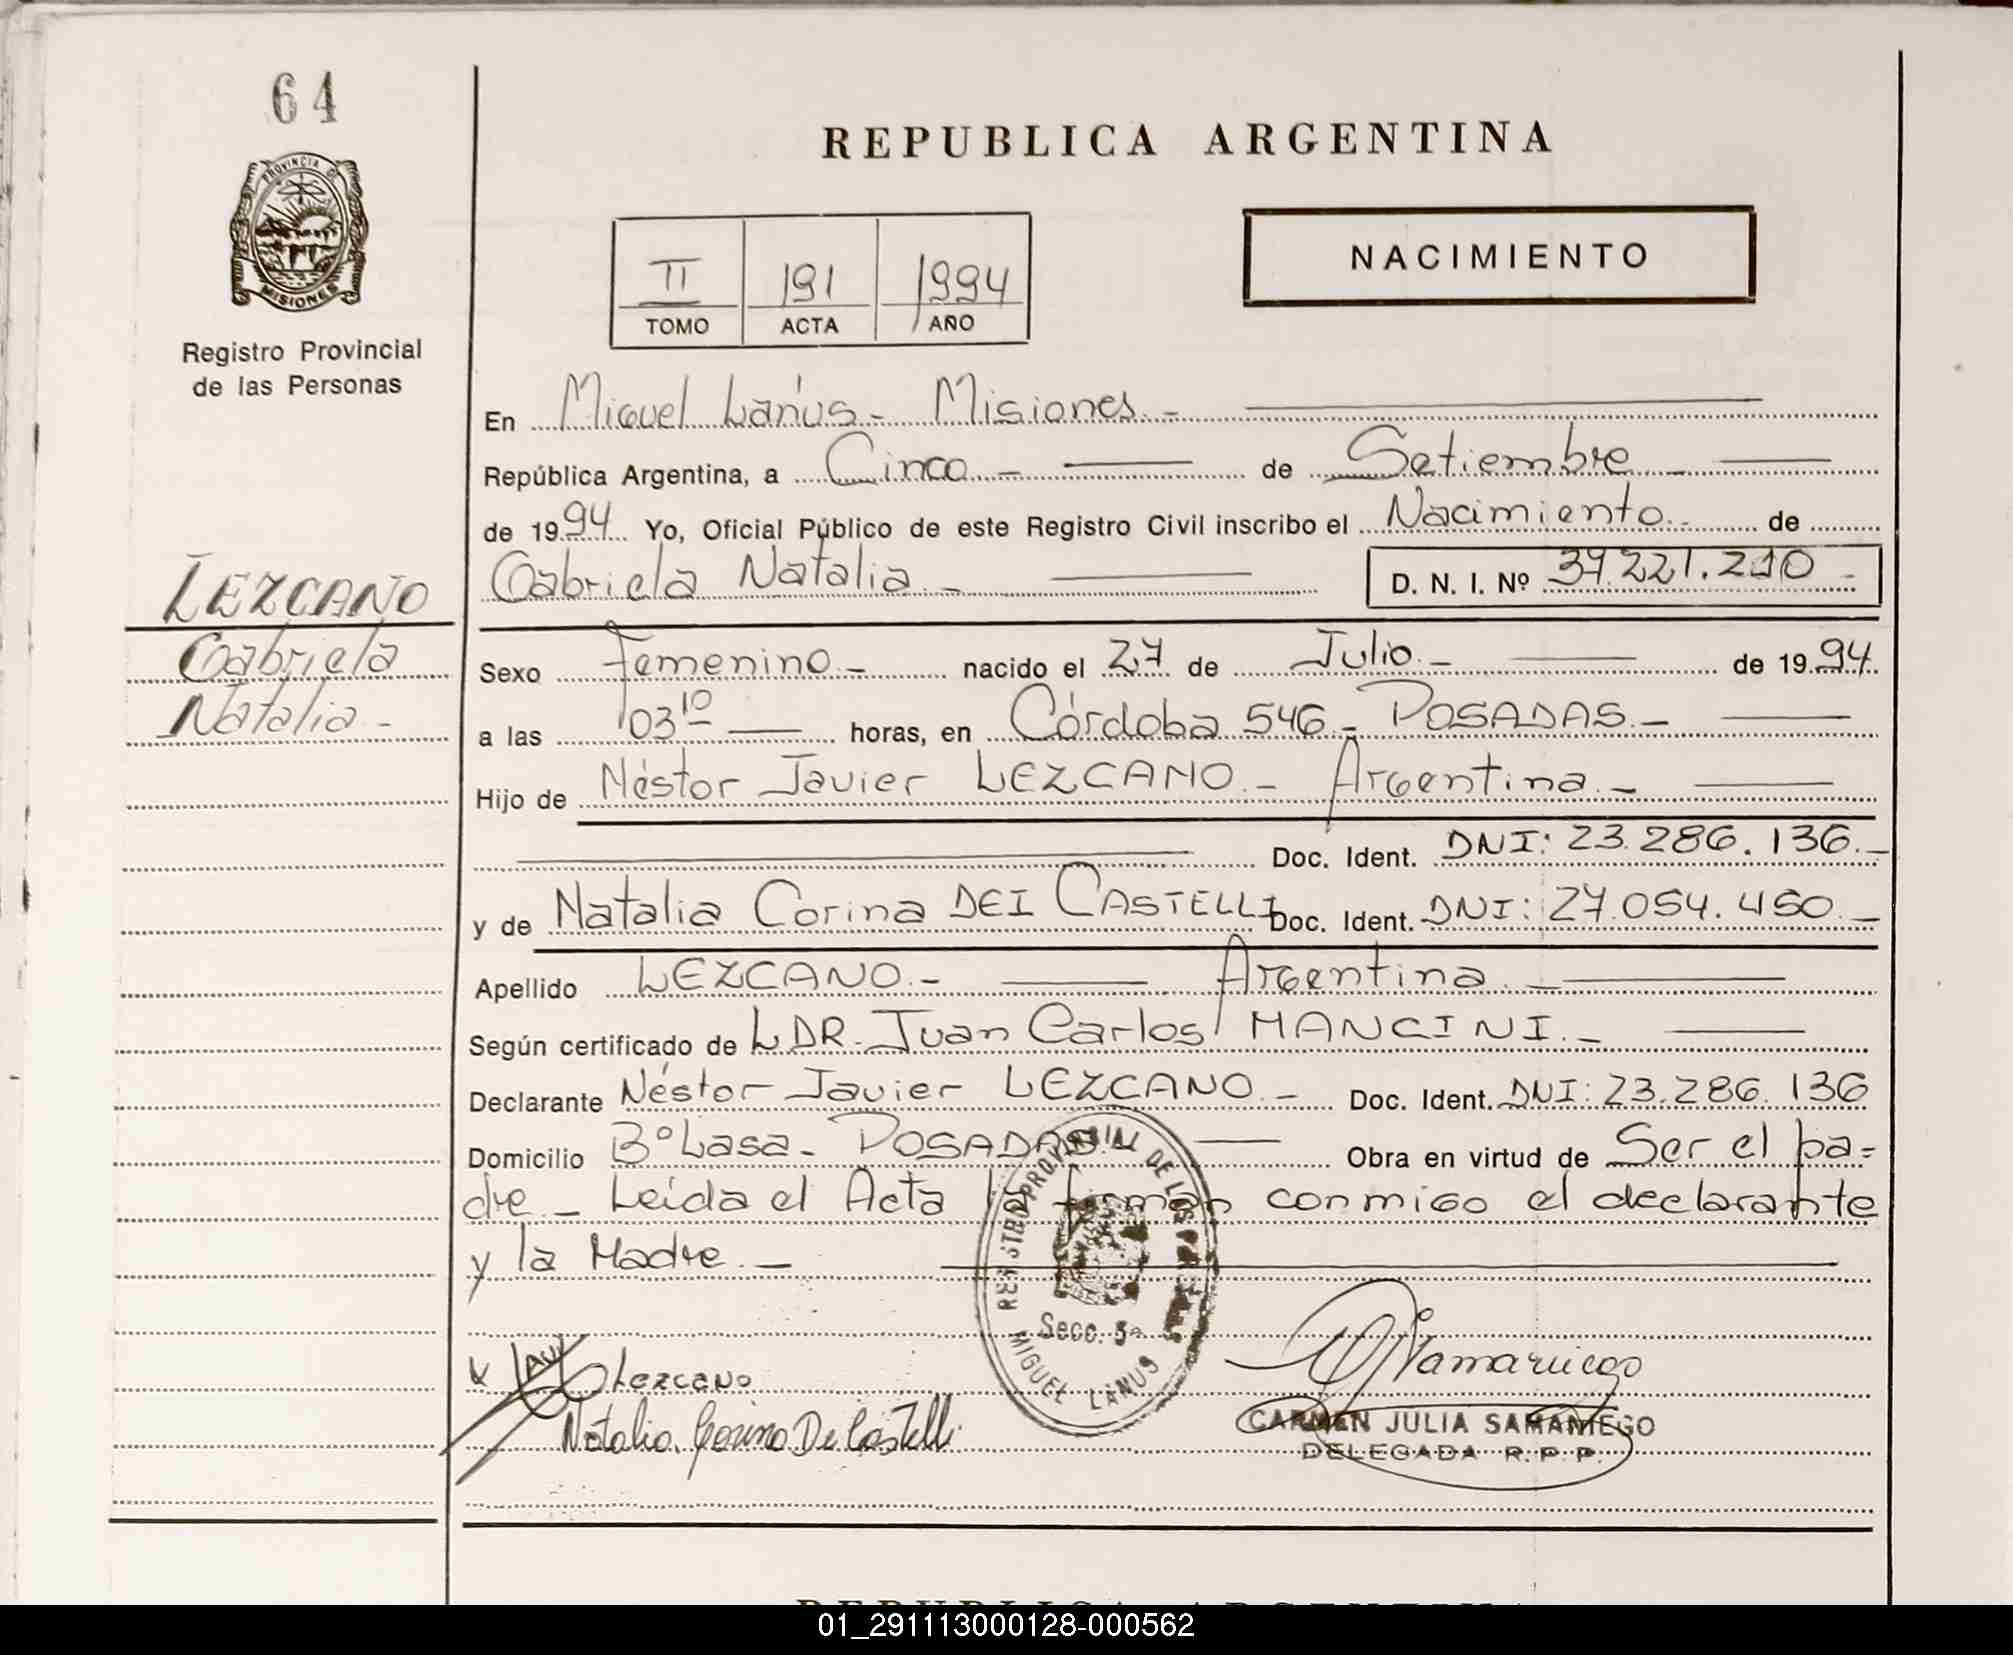 64
REPUBLICA ARGENTINA
PROVINCIA DE
MISIONES
Registro Provincial
de las Personas
II 191 1994
TOMO ACTA AÑO
NACIMIENTO
En Miguel Lanús - Misiones. -
República Argentina, a Cinco - de Setiembre -
de 1994 Yo, Oficial Público de este Registro Civil inscribo el Nacimiento. de
Gabriela Natalia - D. N. I. Nº
LEZCANO
Gabriela
Natalia -
Sexo Femenino - nacido el 27 de Julio. - de 1994.
a las 03 10 horas, en Córdoba 546 - POSADAS. -
Hijo de Néstor Javier LEZCANO. - Argentina. -
Doc. Ident. DNI: 23.286.136. -
y de Natalia Corina DEI CASTELLI Doc. Ident. DNI: 27.054.450. -
Apellido LEZCANO. - Argentina. -
Según certificado de L DR. Juan Carlos MANCINI. -
Declarante Néstor Javier LEZCANO. - Doc. Ident. DNI: 23.286.136
Domicilio Bº Lasa - POSADAS. - Obra en virtud de Ser el pa=
dre. - Leída el Acta la firman conmigo el declarante
y la Madre. -
REGISTRO PROVINCIAL DE LAS PERSONAS
Secc. 5a
MIGUEL LANUS
x Lezcano
Natalia Corina Dei Castelli
CARMEN JULIA SAMANIEGO
DELEGADA R. P. P.
REPUBLICA ARGENTINA
01_291113000128-000562